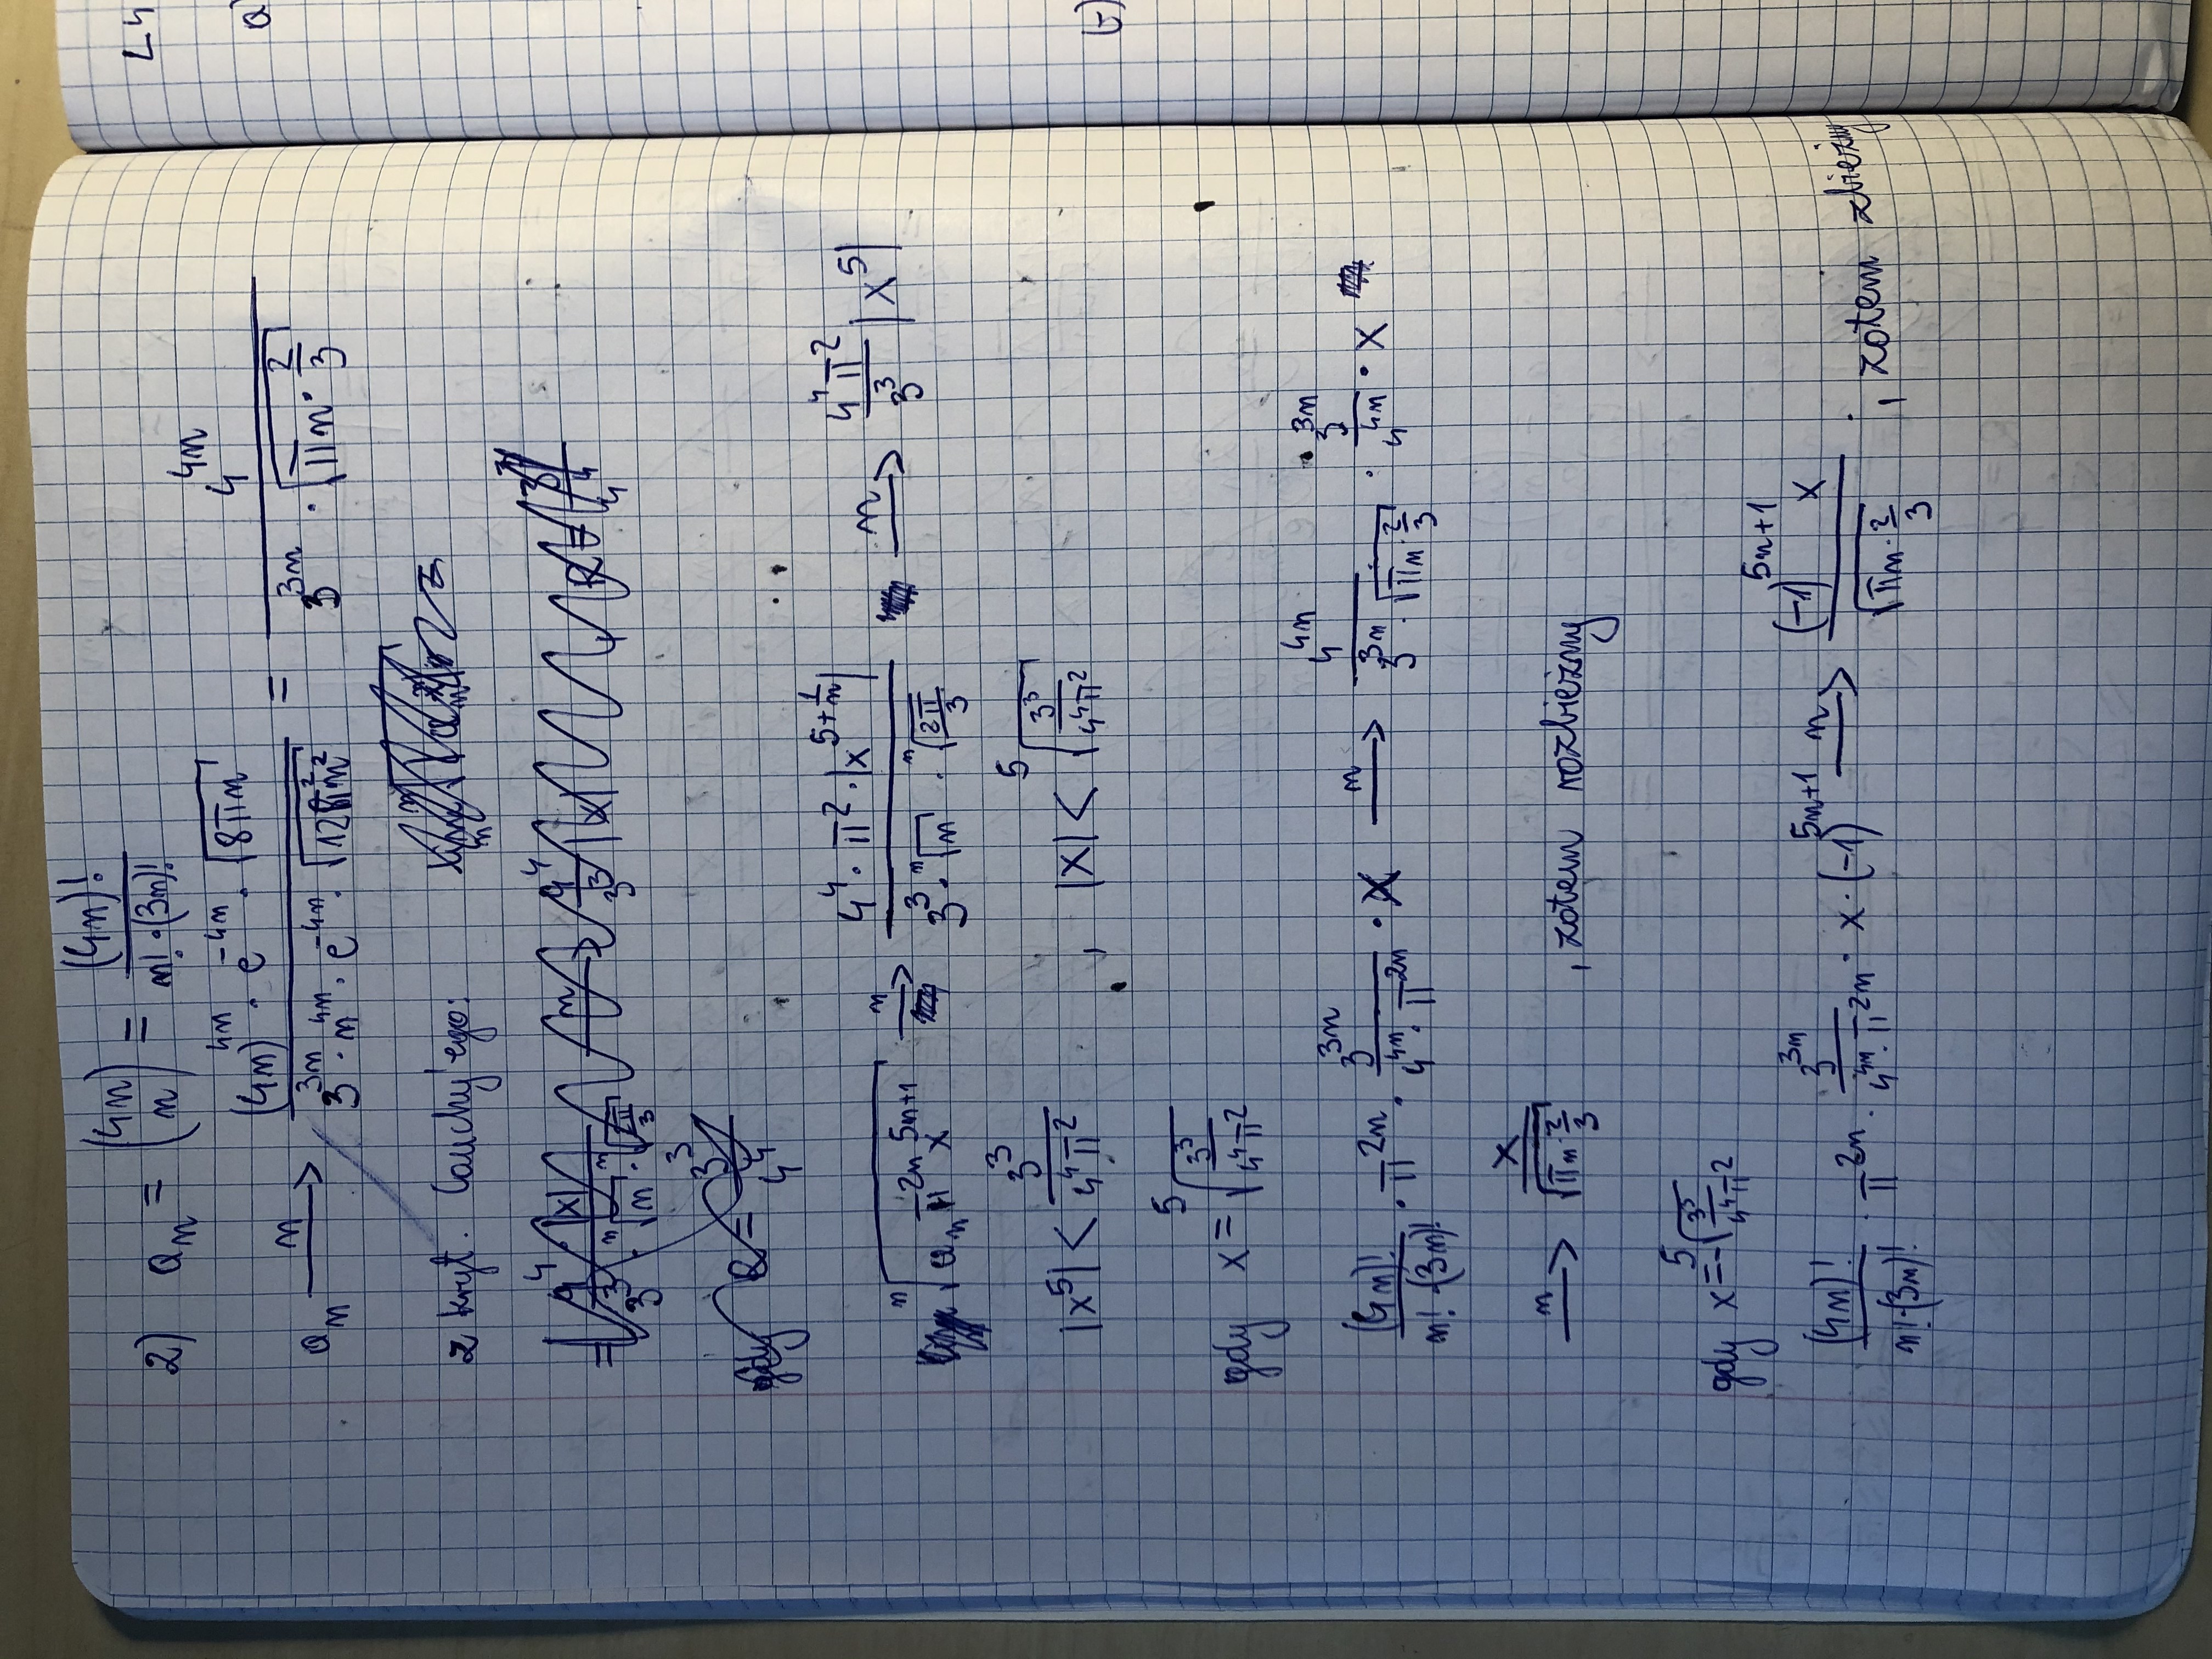 2) a_n = (4n n) = (4n)! / (n! · (3n)!)
a_n —n→ ((4n)^{4n} · e^{-4n} · √(8πn)) / (3^{3n} · n^{4n} · e^{-4n} · √(12π²n²)) = 4^{4n} / (3^{3n} · √(πn · 2/3))
z kryt. Cauchy'ego:
= (4^4 · |x|) / (3^3 · ⁿ√n · ⁿ√(2π/3)) —n→ 4^4/3^3 |x|
gdy Q = 3^3/4^4
ⁿ√(a_n π^{2n} x^{5n+1}) —n→ (4^4 · π² · |x^{5+1/n}|) / (3^3 · ⁿ√n · ⁿ√(2π/3)) —n→ (4^4 π²)/3^3 |x^5|
|x^5| < 3^3/(4^4 π²) , |x| < ⁵√(3^3/(4^4 π²))
gdy x = ⁵√(3^3/(4^4 π²))
(4n)!/(n! · (3n)!) · π^{2n} · 3^{3n}/(4^{4n} · π^{2n}) · x —n→ 4^{4n}/(3^{3n} · √(πn · 2/3)) · 3^{3n}/4^{4n} · x
—n→ x/√(πn · 2/3) , zatem rozbieżny
gdy x = -⁵√(3^3/(4^4 π²))
(4n)!/(n! · (3n)!) · π^{2n} · 3^{3n}/(4^{4n} · π^{2n}) · x · (-1)^{5n+1} —n→ ((-1)^{5n+1} x)/√(πn · 2/3) , zatem zbieżny
L4
a)
b)